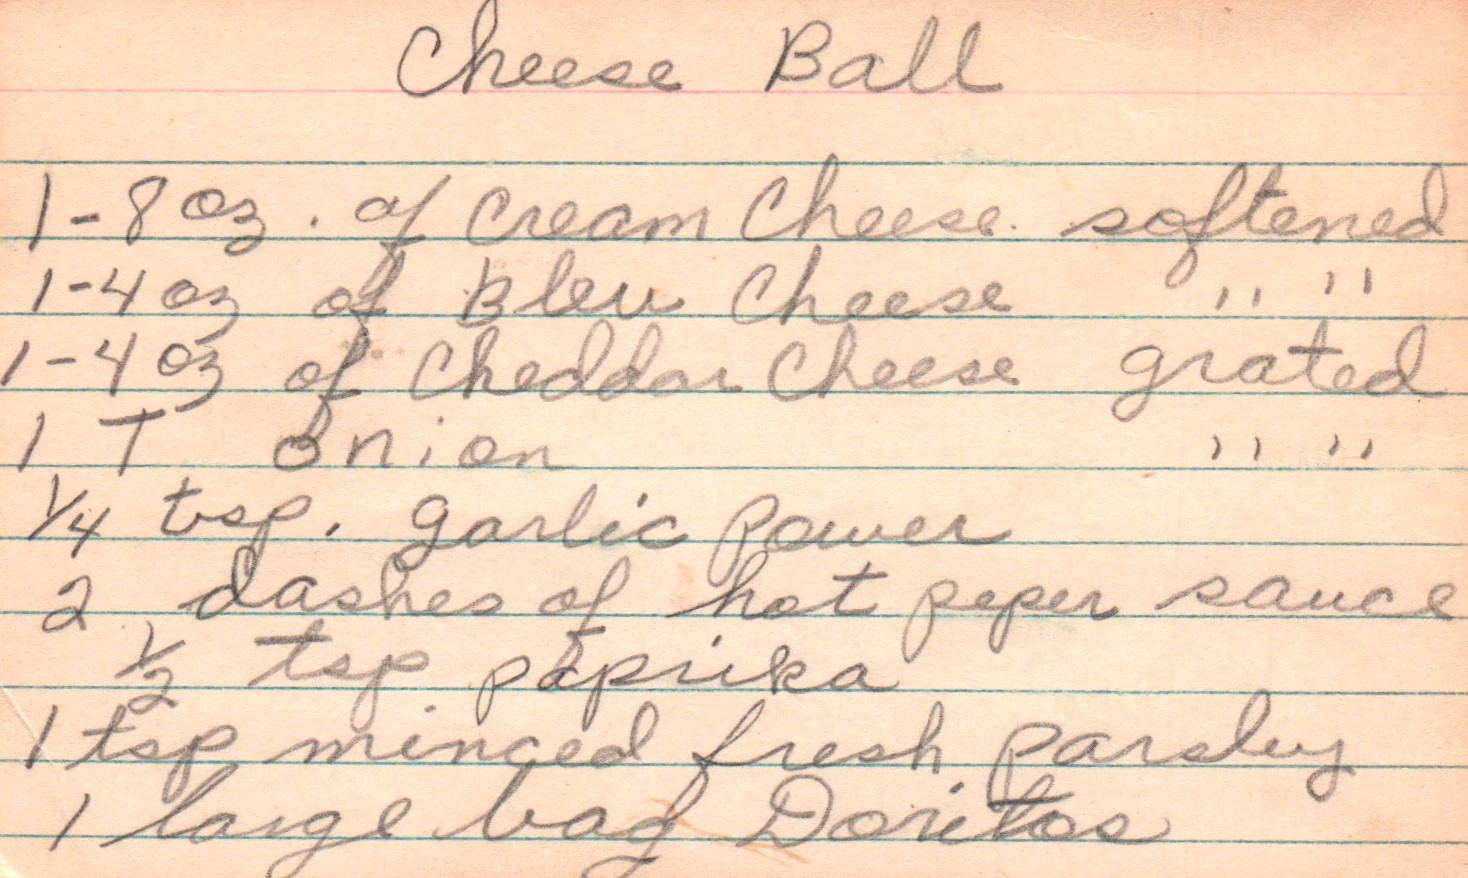 Cheese Ball
1-8 oz. of Cream Cheese. softened
1-4 oz of Bleu Cheese " "
1-4 oz of Cheddar Cheese grated
1 T Onion " "
1/4 tsp. garlic Power
2 dashes of hot peper sauce
1/2 tsp paprika
1 tsp minced fresh parsley
1 large bag Doritos